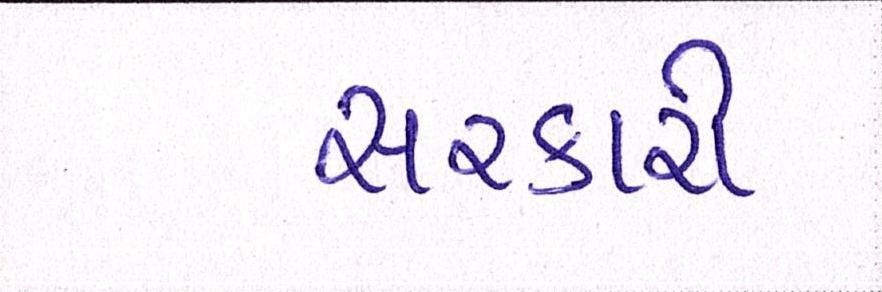 સરકારી